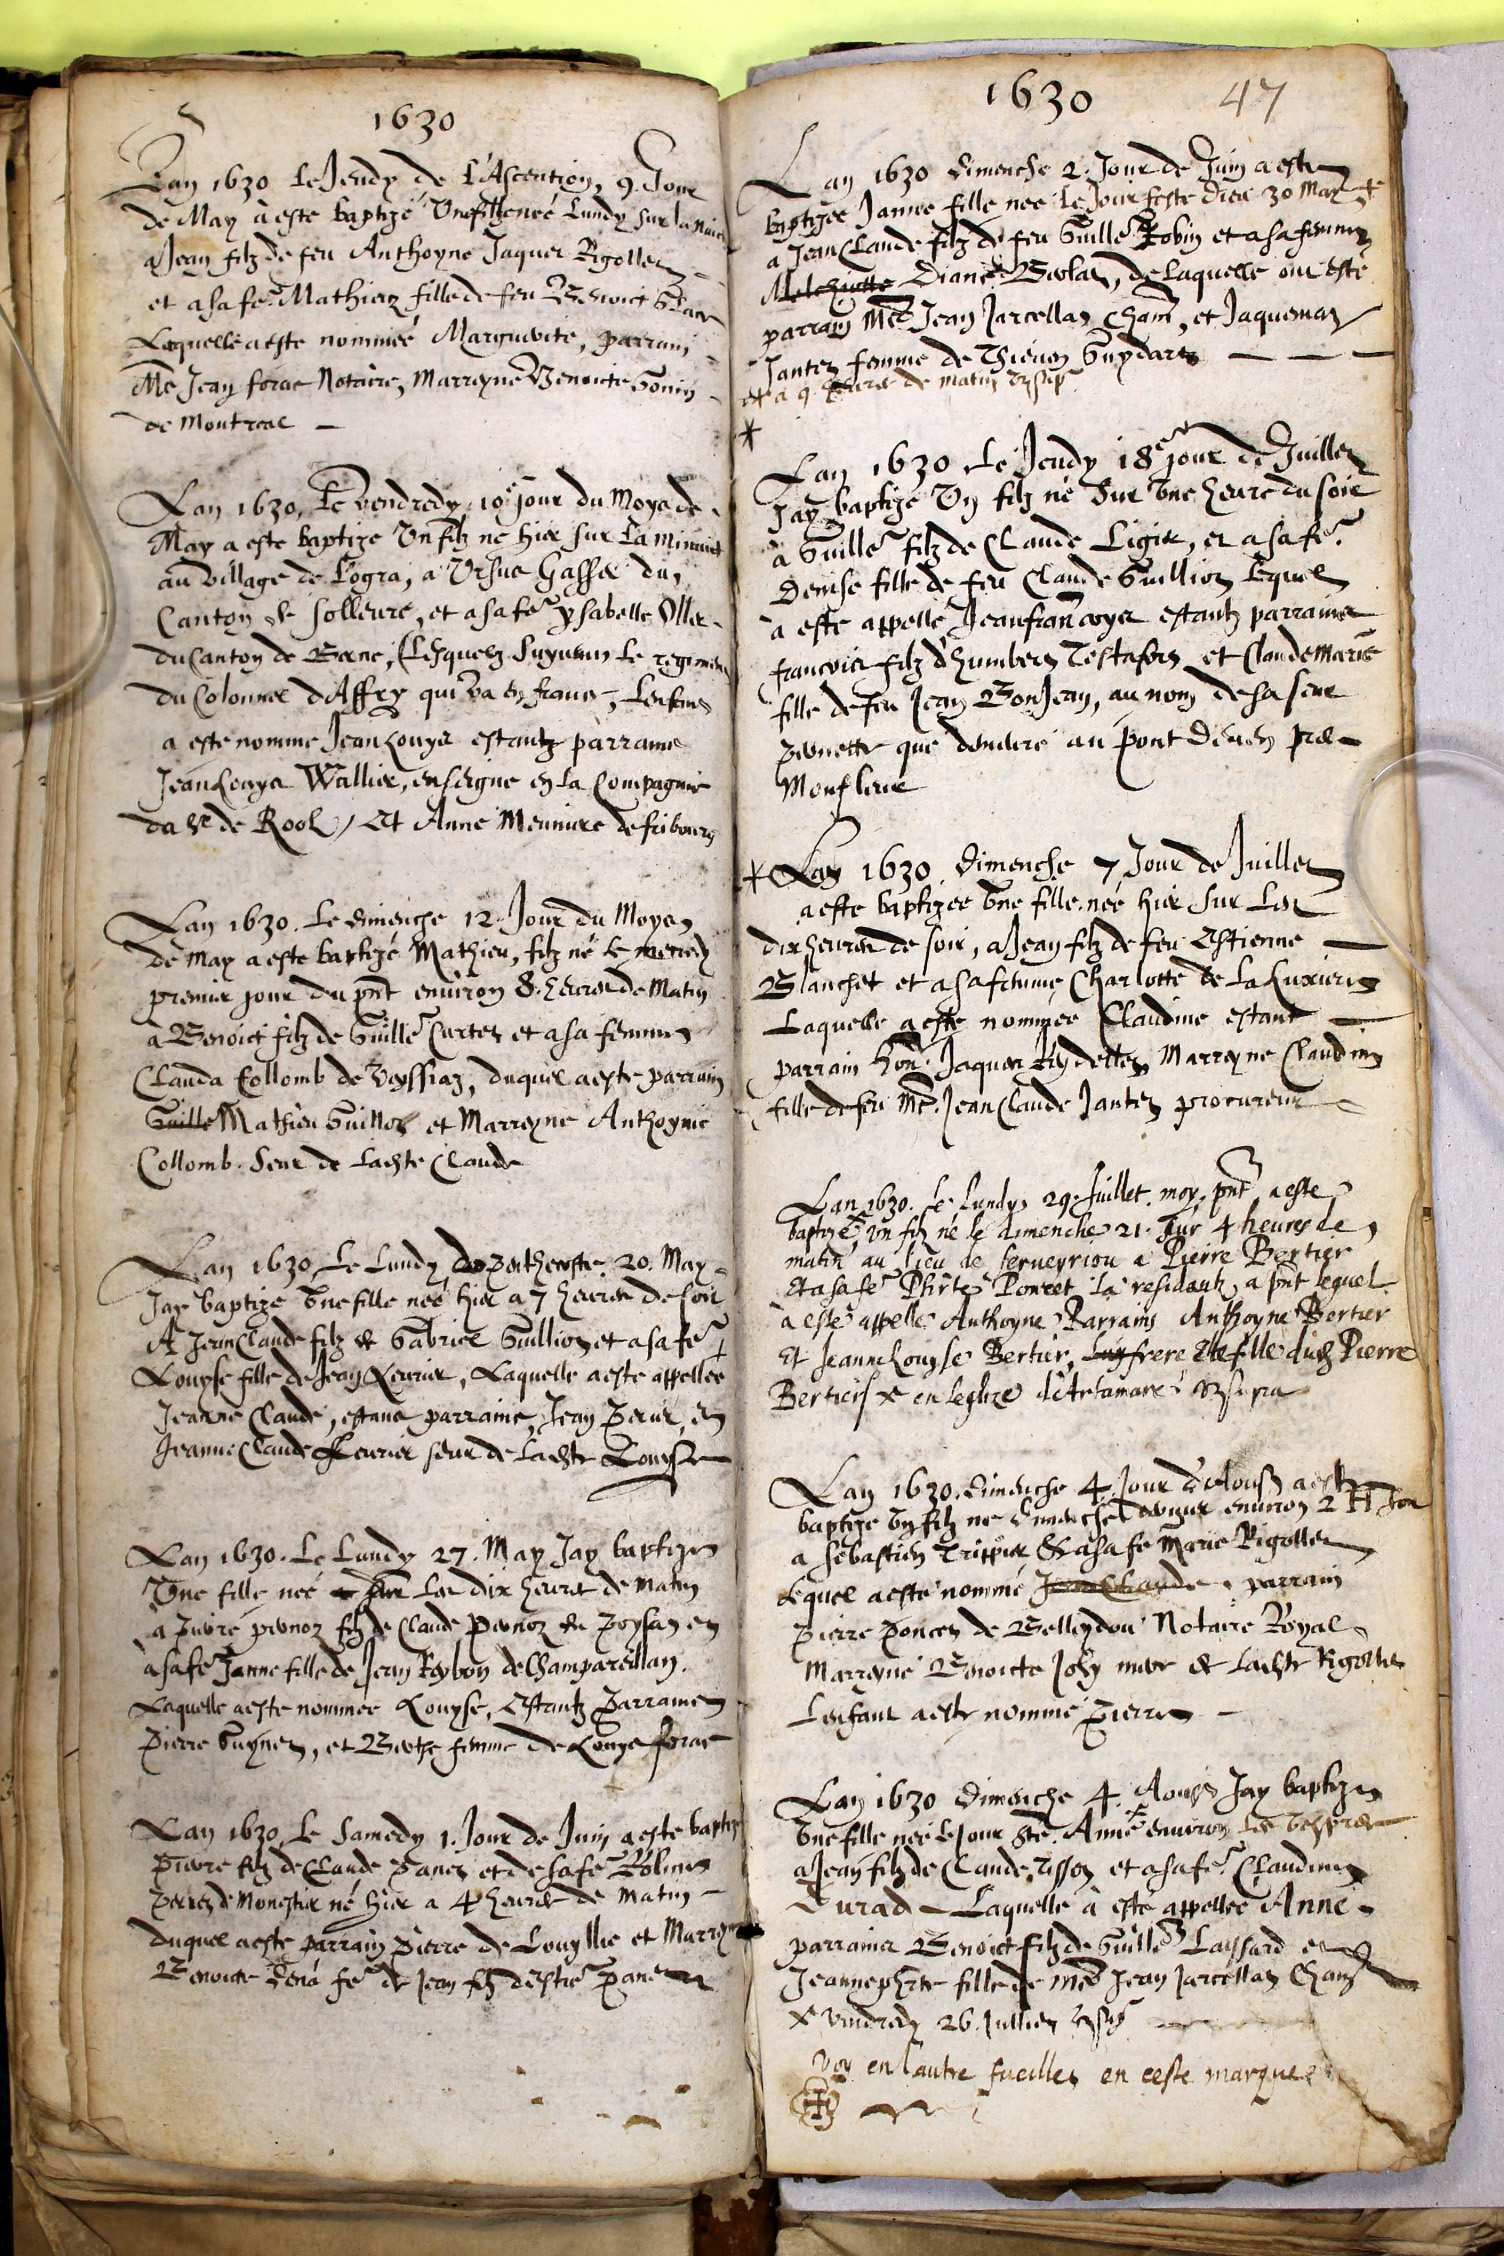 1630
Lan 1630 Le Jeudy de L'Ascention, 9. Jour
de May à este baptizé Une fille neé Lundy sur la nuict
a Jean filz de feu Anthoyne Jaques Rigollet
et a sa fe. Mathieuz fille de feu Benoict
Laquelle a este nommeé Marguerite, parrain
Me Jean forac Notaire, Marreyne Benoicte Gonin
de Montreal
Lan 1630, Le vendredy, 10e jour du Moys de
May a este baptize Un filz ne hier sur La Minuict
au village de Logra, a Ursus Gasser du
Canton de Solleure, et a sa fe. ysabelle Oller
du Canton de Berne, Lesquelz suyvent le regiment
du Colonnel dAffry qui va en france, Lenfant
a este nomme Jean Louys estantz parrains
Jean Louys Wallier, enseigne en la Compagnie
du Sr de Rool, Et Anne Meuniere de fribourg
Lan 1630. Le dimenche 12. Jour du Moys
de May a este baptizé Mathieu, filz né le mercredy
premier jour du pnt environ 8. heures de Matin
a Benoict filz de Guille Curtet et a sa femme
Clauda Collomb de Veyssiaz, duquel a este parrain
Guille Mathieu Guillot et Marreyne Anthoynie
Collomb. Seur de ladte Claude
Lan 1630 Le Lundy de Penthecoste. 20. May
Jay baptize Une fille neé hier a 7 heures de soir
A Jean Claude filz de Gabriel Guillion et a sa fe
Louyse fille de Jean Leurier, Laquelle a este appellee
Jeanne Claude, estant parrains, Jean Perier, et
Jeanne Claude Leurier seur de ladte Louyse
Lan 1630. Le Lundy 27. May Jay baptize
Une fille neé sur Les dix heures de matin
a Pierre pernoz filz de Claude pernoz du Poysat et
a sa fe Janne fille de Jean Reybon de Champareillan.
Laquelle a este nommee Louyse, Estantz Parrains
Pierre Guynet, et Berthe femme de Louys forac
Lan 1630, Le Samedy 1. Jour de Juin a este baptize
Pierre filz de Claude Panet et de sa fe
de Monestier né hier a 4 heures de Matin
duquel a este parrain Pierre de Louyllie et Marreyne
Benoicte fe de Jean filz dEstie Panet
1630 47
Lan 1630 dimenche 2. Jour de Juin a este
baptizee Janne fille nee le Jour feste Dieu 30 May
a Jean Claude filz de feu Guille Robin et a sa femme
Melchiotte Diane Berlat, de Laquelle ont esté
parrain Mre Jean Jarcellat Chan, et Jaquemaz
Jantet femme de Thieven Guydard
a 9. heures de matin
Lan 1630 Le Jeudy 18e jour de Juillet
Jay baptize Un filz né Sur Une heure du soir
a Guille filz de Claude Ligier, et a sa fe.
Denise fille de feu Claude Guillion Lequel
a este appellé Jean francoys estantz parrains
francois filz dhumbert Testafort et Claude Marie
fille de feu Jean Bonjean, au nom de sa seur
pernette que demeure au pont Deven pre
Monsleur
Lan 1630 dimenche 7 Jour de Juillet
a este baptizee Une fille neé hier sur Les
dix heures de soir, a Jean filz de feu Estienne
Blanchet et a sa femme Charlotte de La
Laquelle a este nommee Claudine estant
parrain hon. Jaques Reydellet Marreyne Claudine
fille de feu Me. Jean Claude Jantet procureur
Lan 1630. Le Lundy 29. Juillet. moy pnt a este
baptizé Un filz né le dimenche 21. Sur 4 heures de
matin au lieu de Cerveyrieu a Pierre Bertier
Et a sa fe Phirte Poncet la residantz a pnt lequel
à este appelle Anthoyne Parrains Anthoyne Bertier
Et Jeanne Louyse Bertier, frere Et fille dudt Pierre
Bertier x en leglize dArtamare
Lan 1630. dimenche 4. Jour dAoust a este
baptize Un filz né dimenche dernier environ 2 H soir
a Sebastien Trippier & a sa fe Marie Rigollet
Lequel a esté nommé Jean Claude. parrain
Pierre Poncet de Belleydou Notaire Royal
Marreyne Benoicte Joly mere de ladte Rigollet
Lenfant a este nommé Pierre
Lan 1630 dimenche 4. Aoust Jay baptize
Une fille neé le jour Ste. Anne x environ Les Vespres
a Jean filz de Claude Tissot et a sa fe Claudine
Durad Laquelle à esté appellée Anne
parrains Benoict filz de Guille Layssard et
Jeanne phirte fille de Me Jean Jarcellat Chan
x vendredy 26. Juillet
Voy en lautre fueillet en ceste marque